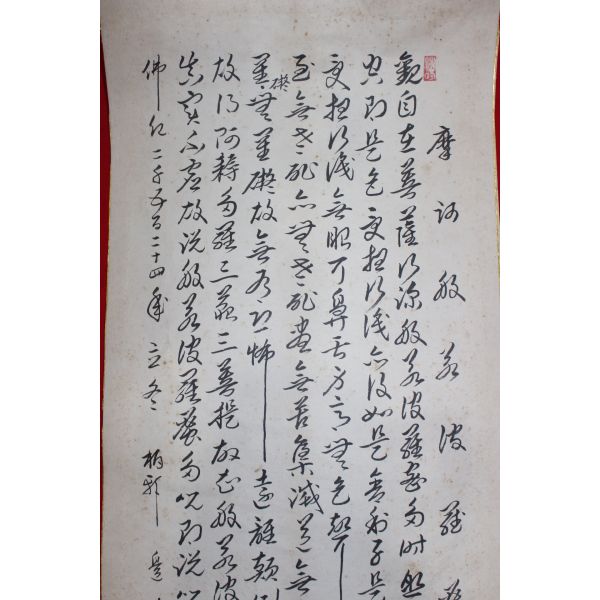 摩訶般若波羅
觀自在菩薩行深般若波羅蜜多時照
空即是色受想行識亦復如是舍利子是
受想行識無眼耳鼻舌身意無色聲
至無老死亦無老死盡無苦集滅道無
罣礙無罣礙故無有恐怖遠離顛倒
故得阿耨多羅三藐三菩提故知般若波
真實不虛故說般若波羅蜜多呪即說呪
佛紀二千五百二十四年立冬